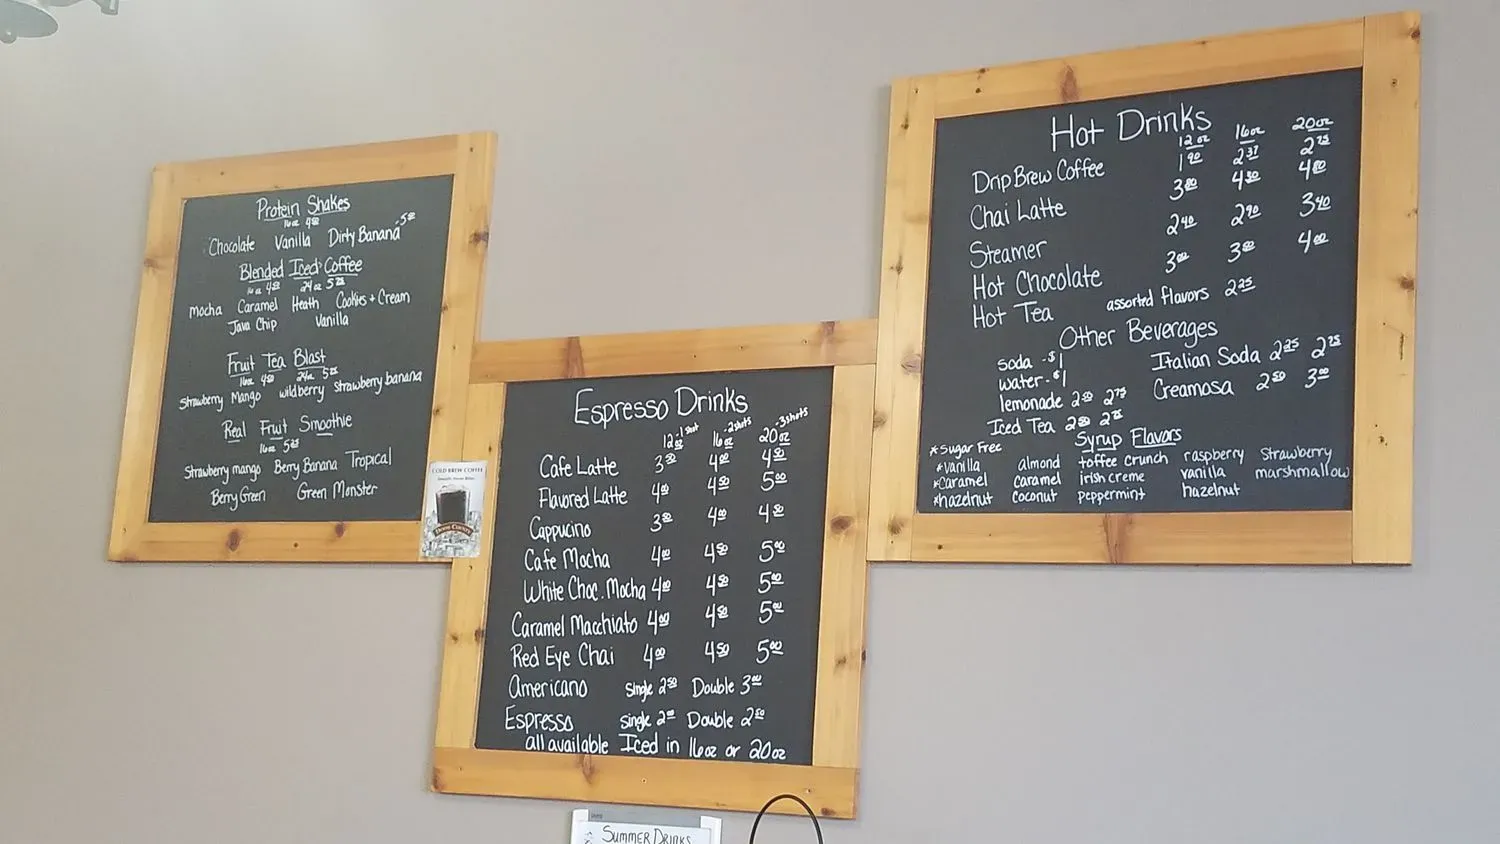 Protein Shakes
16oz 4.50
Chocolate Vanilla Dirty Banana -5.50
Blended Iced Coffee
16oz 4.50 24oz 5.25
mocha Caramel Heath Cookies + Cream
Java Chip Vanilla
Fruit Tea Blast
16oz 4.50 24oz 5.25
Strawberry Mango wildberry strawberry banana
Real Fruit Smoothie
16oz 5.25
Strawberry mango Berry Banana Tropical
Berry Green Green Monster
COLD BREW COFFEE
Espresso Drinks
12oz -1 shot 16oz -2 shots 20oz -3 shots
Cafe Latte 3.50 4.00 4.50
Flavored Latte 4.00 4.50 5.00
Cappucino 3.50 4.00 4.50
Cafe Mocha 4.00 4.50 5.00
White Choc. Mocha 4.00 4.50 5.00
Caramel Macchiato 4.00 4.50 5.00
Red Eye Chai 4.00 4.50 5.00
Americano Single 2.50 Double 3.00
Espresso Single 2.00 Double 2.50
all available Iced in 16oz or 20oz
SUMMER DRINKS
Hot Drinks
12oz 16oz 20oz
Drip Brew Coffee 1.90 2.37 2.75
Chai Latte 3.80 4.30 4.80
Steamer 2.40 2.90 3.40
Hot Chocolate 3.00 3.50 4.00
Hot Tea assorted flavors 2.25
Other Beverages
soda -$1
water -$1
lemonade 2.50 2.75
Iced Tea 2.50 2.75
Italian Soda 2.25 2.75
Creamosa 2.50 3.00
Syrup Flavors
*Sugar Free
*vanilla almond toffee crunch raspberry strawberry
*Caramel caramel irish creme vanilla marshmallow
*hazelnut coconut peppermint hazelnut